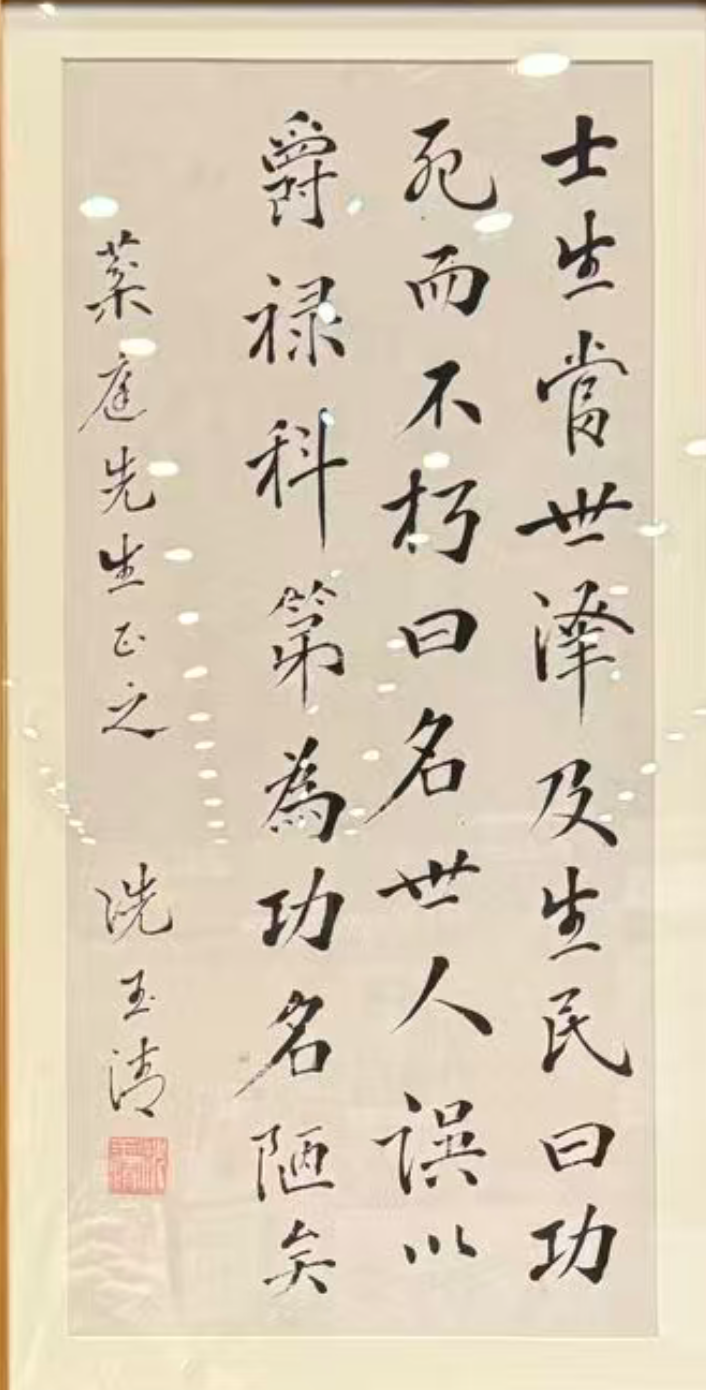 士生當世澤及生民曰功
死而不朽曰名世人誤以
爵禄科第為功名陋矣
菜庭先生正之
冼玉清